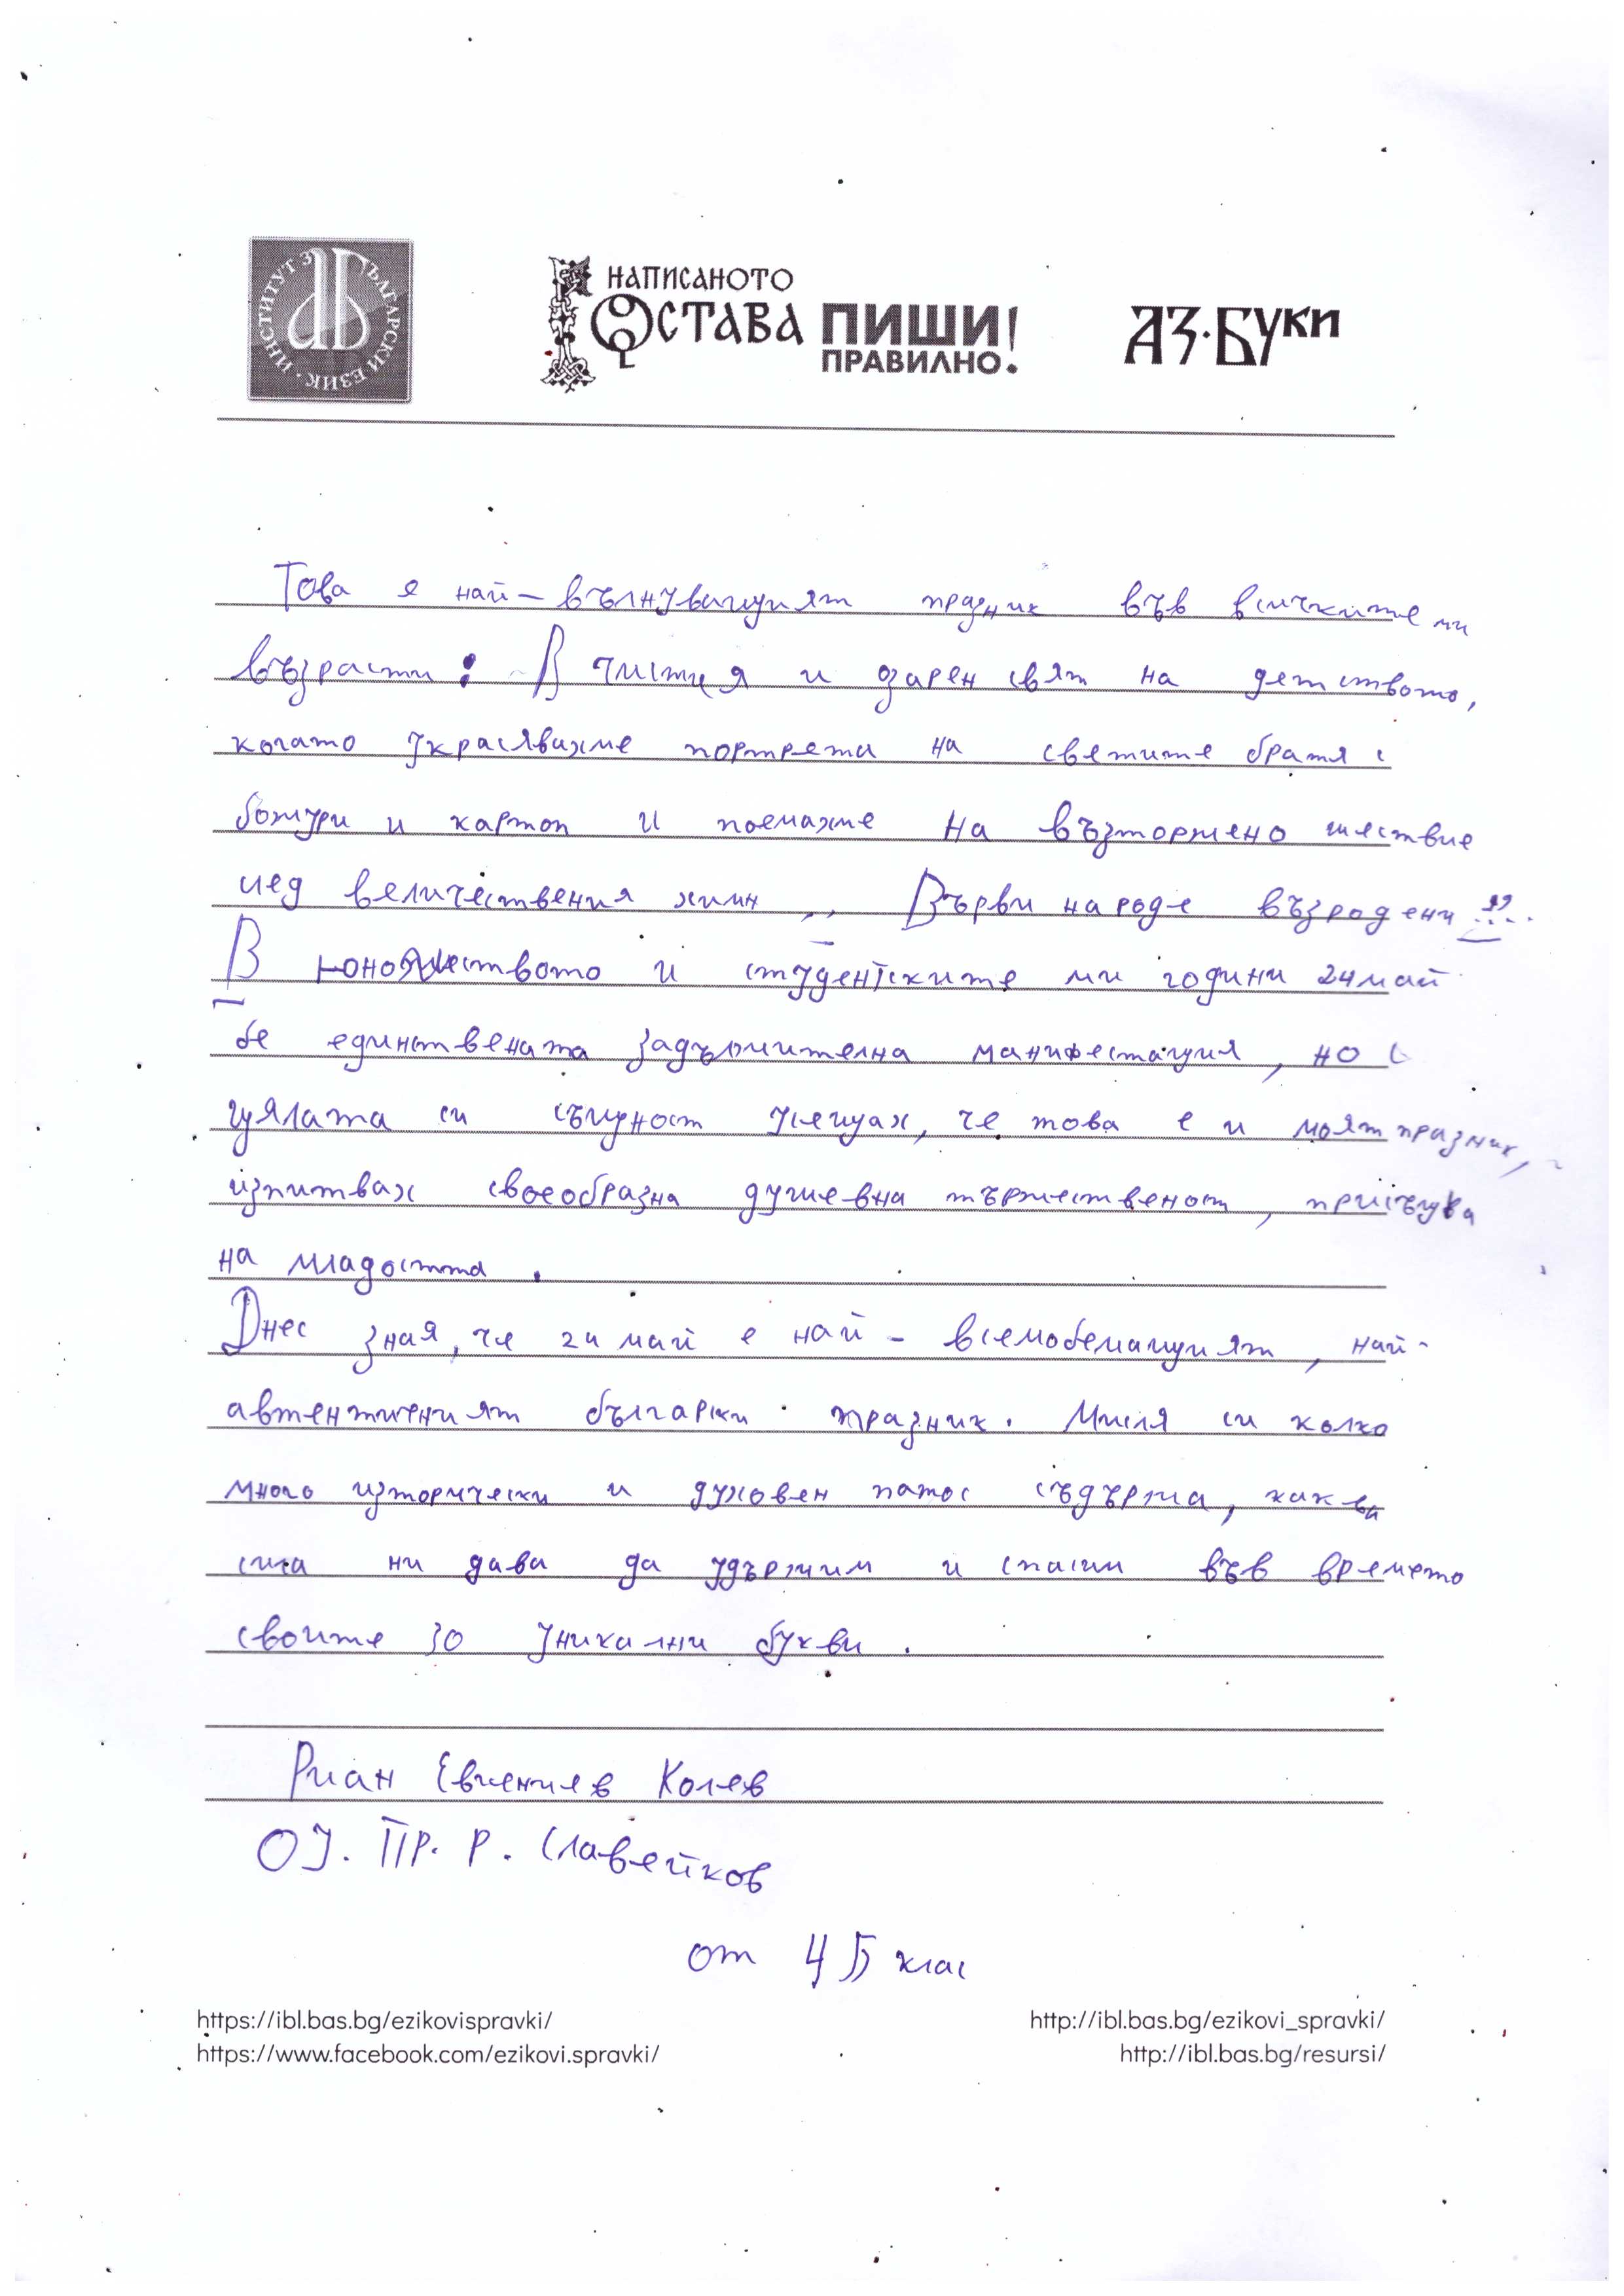 ИНСТИТУТ ЗА БЪЛГАРСКИ ЕЗИК
НАПИСАНОТО
ОСТАВА ПИШИ!
ПРАВИЛНО.
АЗ·БУКИ
Това е най-вълнуващият празник във всичките ми
възрасти: В чистия и озарен свят на детството,
когато украсявахме портрета на светите братя с
божури и картон и поемахме на възторжено шествие
след величествения химн ,, Върви народе възродени"...
В юношеството и студентските ми години 24 май
бе единствената задължителна манифестация, но с
цялата си същност усещах, че това е и моят празник,
изпитвах своеобразна душевна тържественост, присъща
на младостта.
Днес зная, че 24 май е най-всемобемащият, най-
автентичният български празник. Мисля си колко
много исторически и духовен патос съдържа, каква
сила ни дава да удържим и спасим във времето
своите 30 уникални букви.
Риан Евгениев Колев
ОУ. ПР. Р. Славейков
от 4 Б клас
https://ibl.bas.bg/ezikovispravki/
http://ibl.bas.bg/ezikovi_spravki/
https://www.facebook.com/ezikovi.spravki/
http://ibl.bas.bg/resursi/